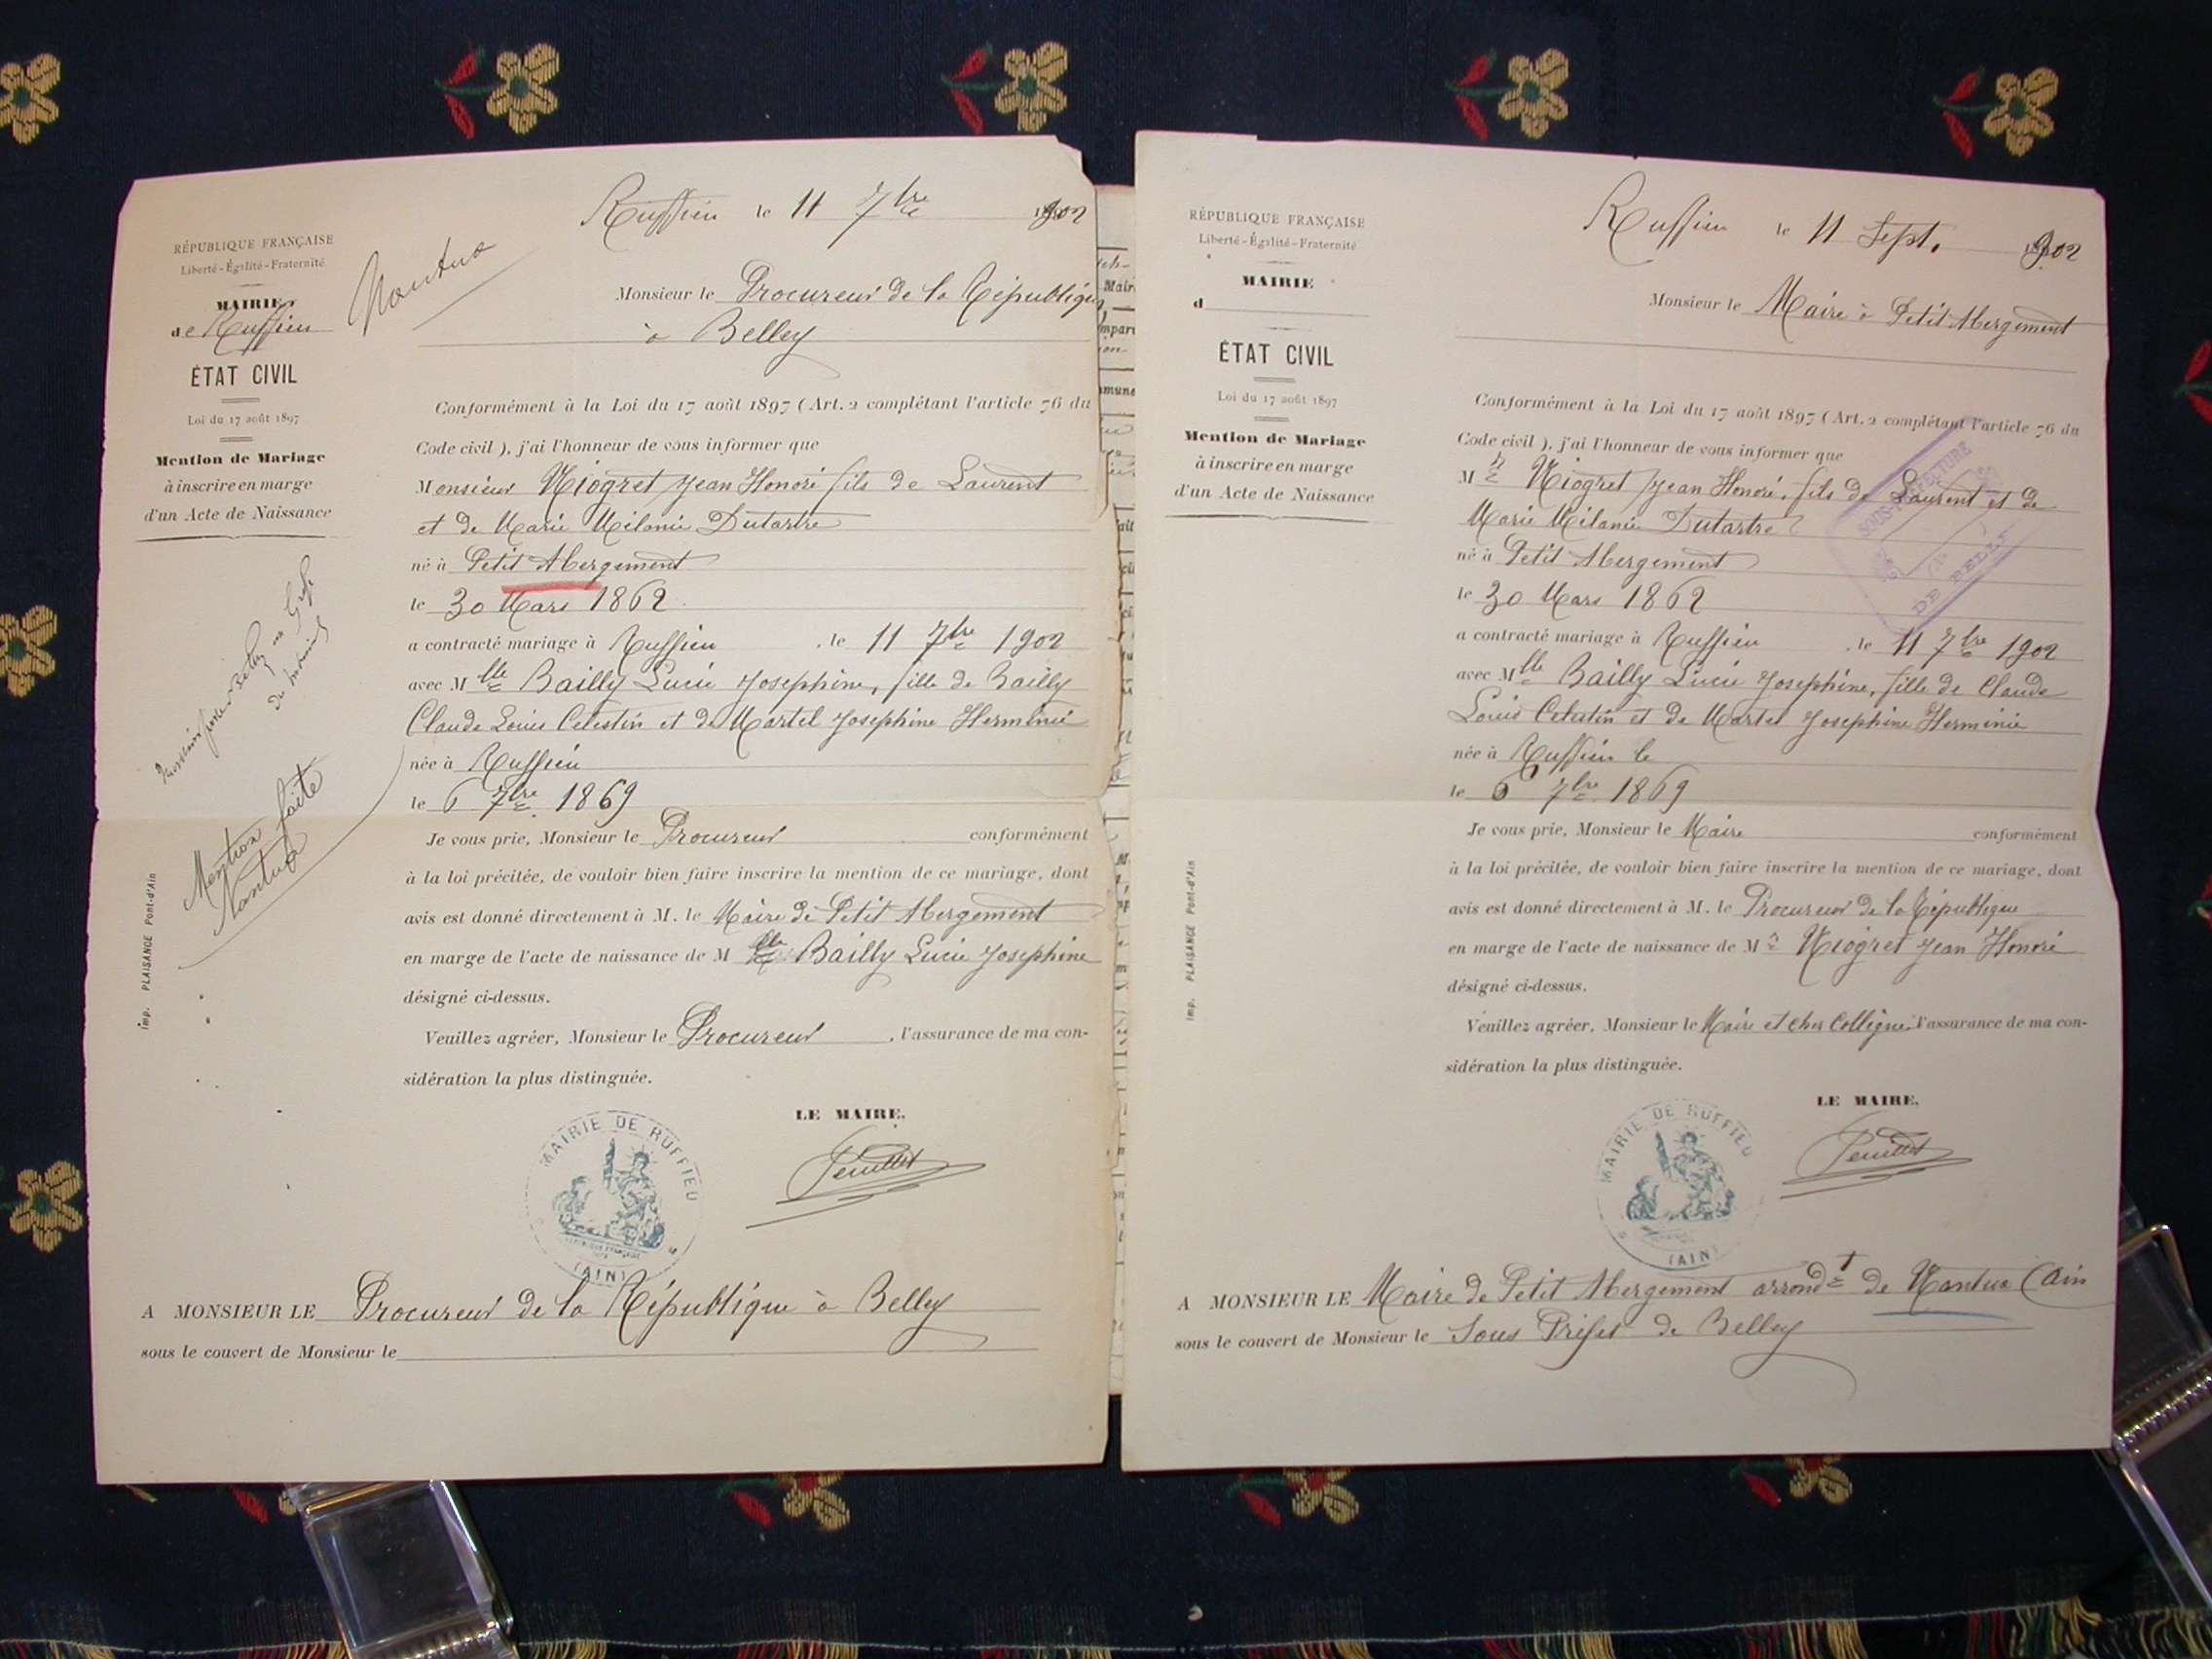 RÉPUBLIQUE FRANÇAISE
Liberté-Égalité-Fraternité
MAIRIE
de Ruffieu
ÉTAT CIVIL
Loi du 17 août 1897
Mention de Mariage
à inscrire en marge
d'un Acte de Naissance
Mention faite
Nantua
Imp. PLAISANCE Pont-d'Ain
Nantua
Ruffieu le 11 7bre 1902
Monsieur le Procureur de la République
à Belley
Conformément à la Loi du 17 août 1897 (Art. 2 complétant l'article 76 du
Code civil), j'ai l'honneur de vous informer que
Monsieur Niogret Jean Honoré fils de Laurent
et de Marie Mélanie Dutartre
né à Petit Abergement
le 30 Mars 1862
a contracté mariage à Ruffieu, le 11 7bre 1902
avec Mlle Bailly Lucie Josephine, fille de Bailly
Claude Louis Celestin et de Martel Josephine Herminie
née à Ruffieu
le 6 7bre 1869
Je vous prie, Monsieur le Procureur conformément
à la loi précitée, de vouloir bien faire inscrire la mention de ce mariage, dont
avis est donné directement à M. le Maire de Petit Abergement
en marge de l'acte de naissance de Mlle Bailly Lucie Josephine
désigné ci-dessus.
Veuillez agréer, Monsieur le Procureur, l'assurance de ma con-
sidération la plus distinguée.
LE MAIRE,
MAIRIE DE RUFFIEU
(AIN)
A MONSIEUR LE Procureur de la République à Belley
sous le couvert de Monsieur le
RÉPUBLIQUE FRANÇAISE
Liberté-Égalité-Fraternité
MAIRIE
d
ÉTAT CIVIL
Loi du 17 août 1897
Mention de Mariage
à inscrire en marge
d'un Acte de Naissance
Imp. PLAISANCE Pont-d'Ain
Ruffieu le 11 Sept. 1902
Monsieur le Maire à Petit Abergement
Conformément à la Loi du 17 août 1897 (Art. 2 complétant l'article 76 du
Code civil), j'ai l'honneur de vous informer que
Mr Niogret Jean Honoré, fils de Laurent et de
Marie Mélanie Dutartre
SOUS-PRÉFECTURE
DE BELLEY
né à Petit Abergement
le 30 Mars 1862
a contracté mariage à Ruffieu, le 11 7bre 1902
avec Mlle Bailly Lucie Josephine, fille de Claude
Louis Celestin et de Martel Josephine Herminie
née à Ruffieu le
le 6 7bre 1869
Je vous prie, Monsieur le Maire conformément
à la loi précitée, de vouloir bien faire inscrire la mention de ce mariage, dont
avis est donné directement à M. le Procureur de la République
en marge de l'acte de naissance de Mr Niogret Jean Honoré
désigné ci-dessus.
Veuillez agréer, Monsieur le Maire et cher Collègue, l'assurance de ma con-
sidération la plus distinguée.
LE MAIRE,
MAIRIE DE RUFFIEU
(AIN)
A MONSIEUR LE Maire de Petit Abergement arrondt de Nantua (Ain
sous le couvert de Monsieur le Sous Préfet de Belley